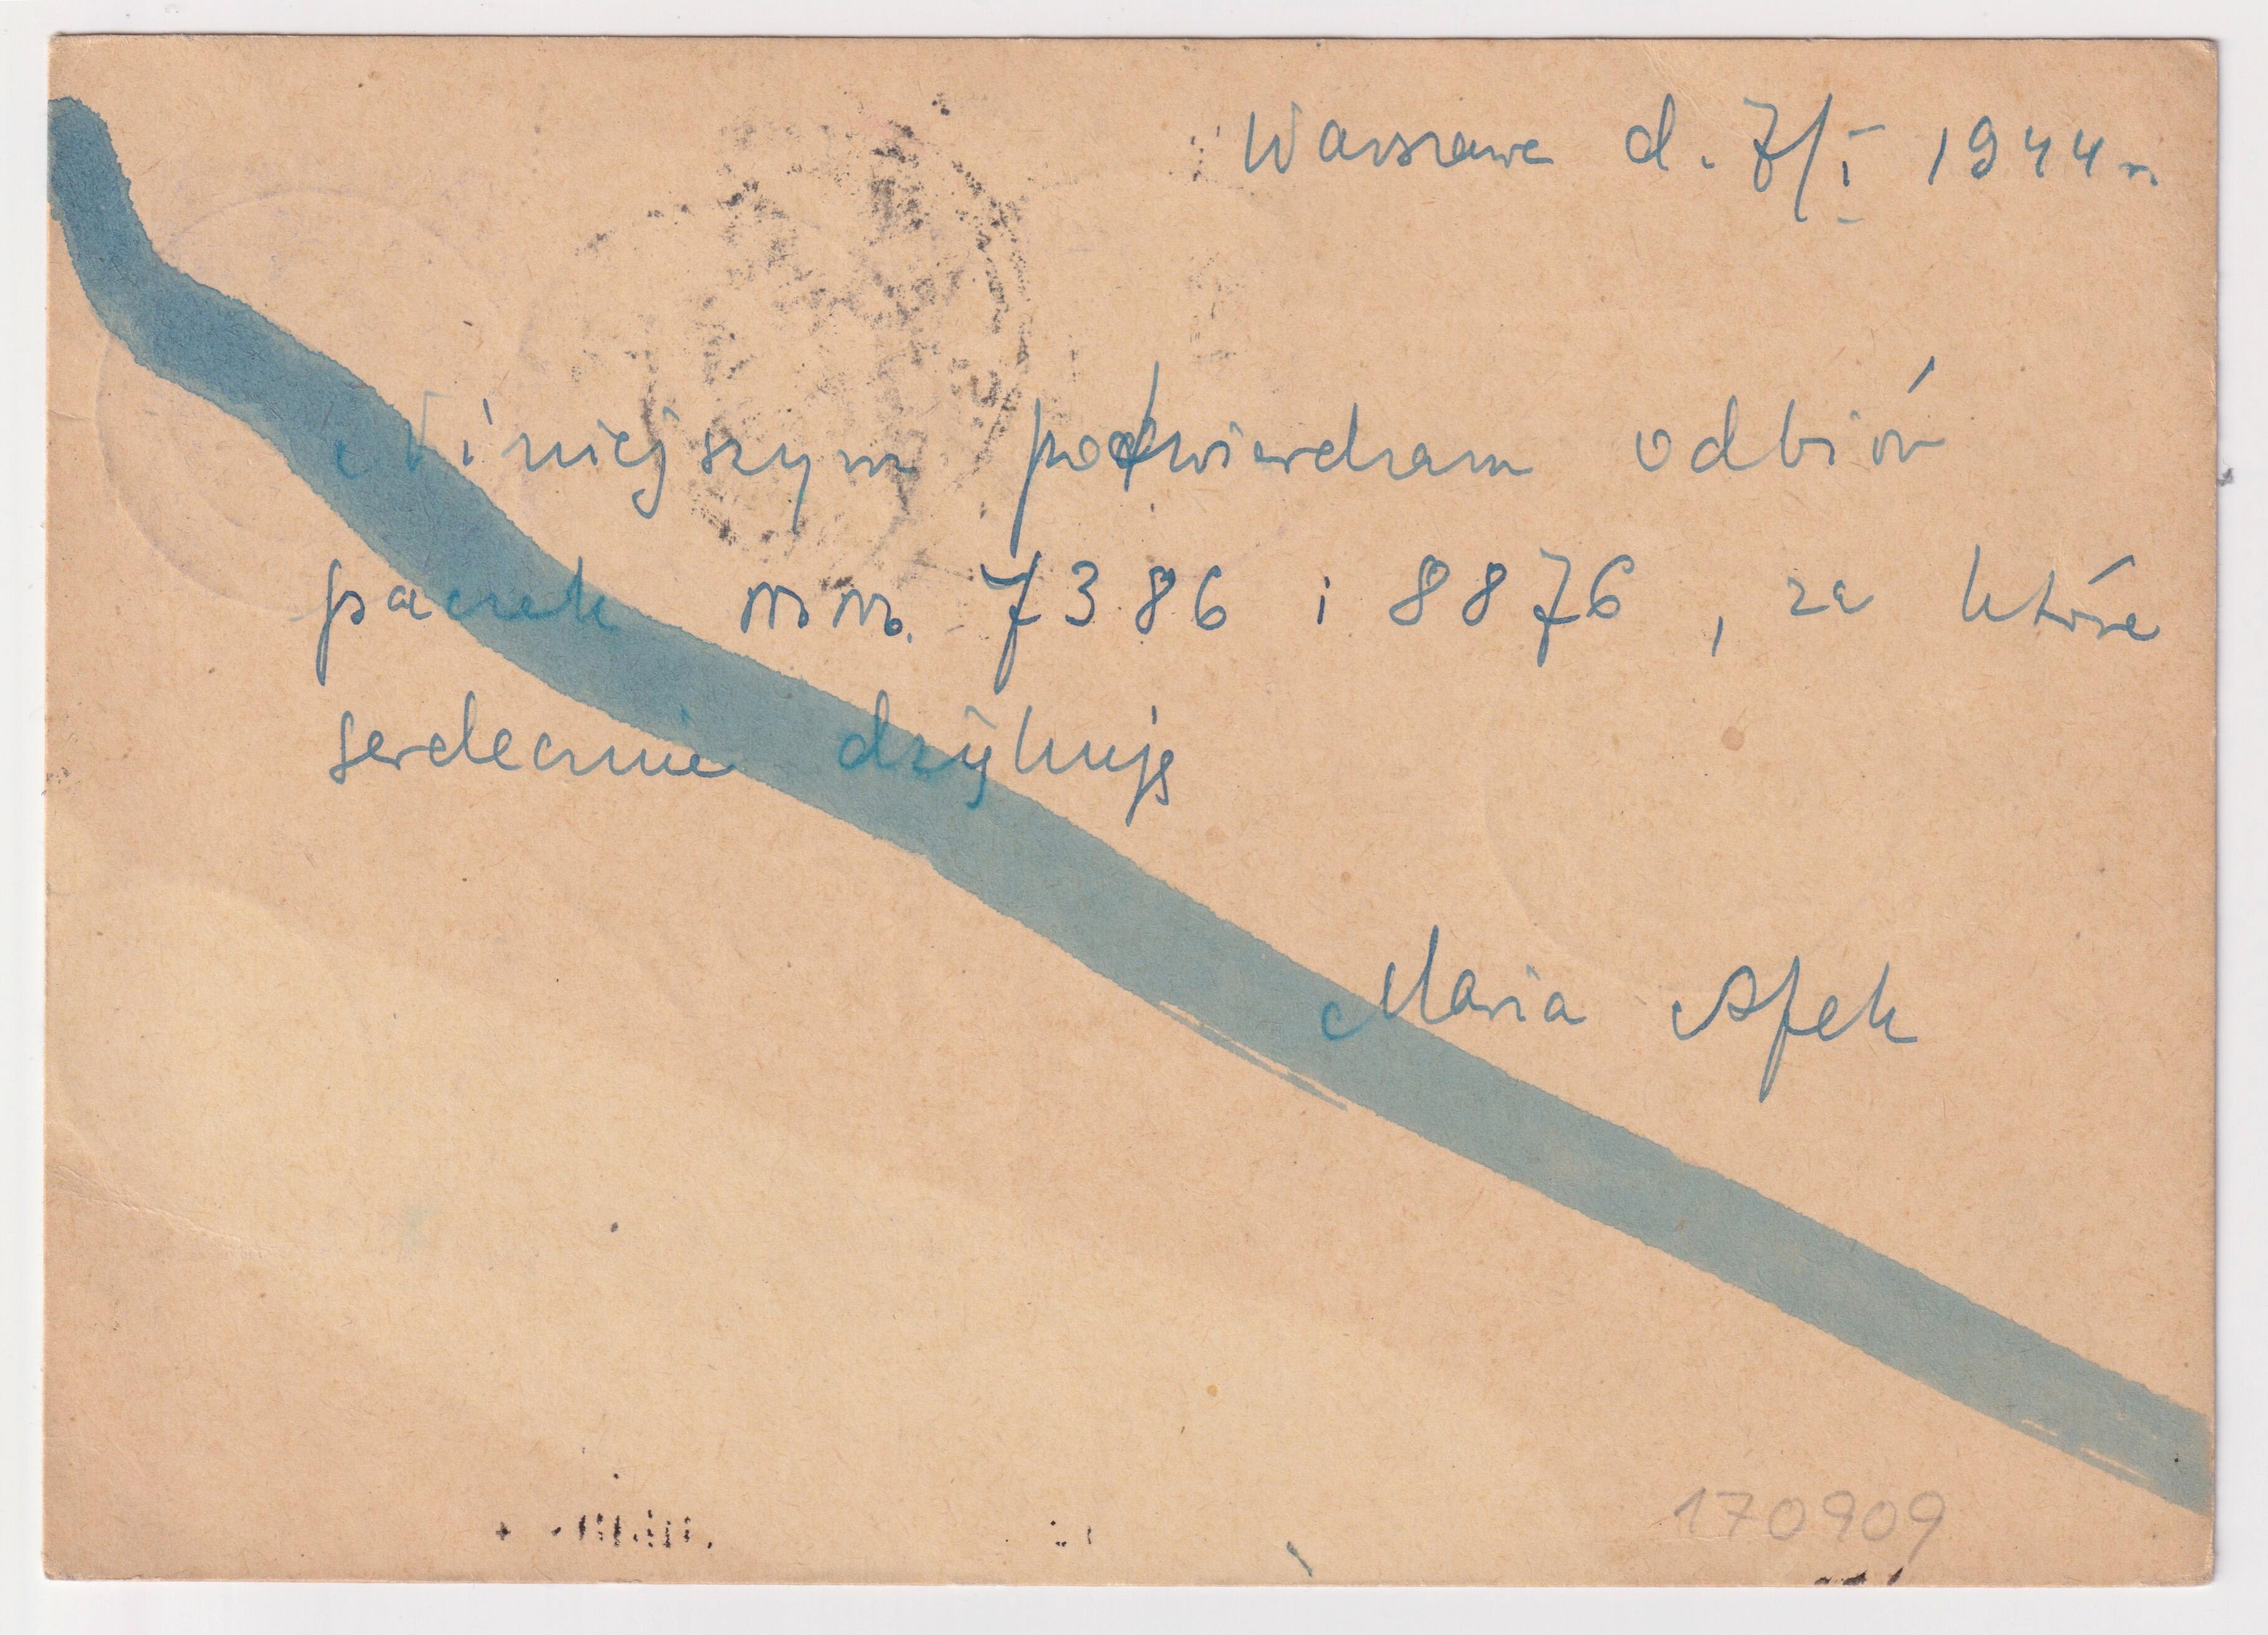 Warszawa d. 7/I 1944 r.
Niniejszym potwierdzam odbiór
paczek nr nr. 7386 i 8876, za które
serdecznie dziękuję
Maria Afek
170909